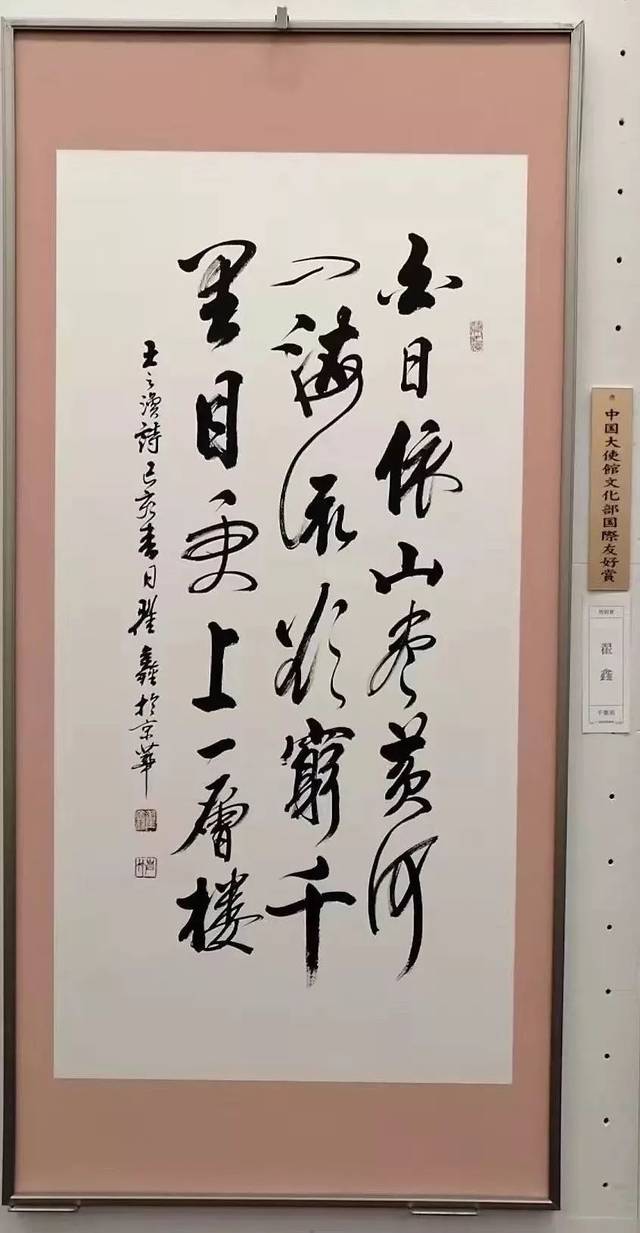 白日依山尽黄河
入海流欲穷千
里目更上一层楼
王之涣诗己亥春日翟鑫於京华
中国大使館文化部国際友好賞
翟鑫